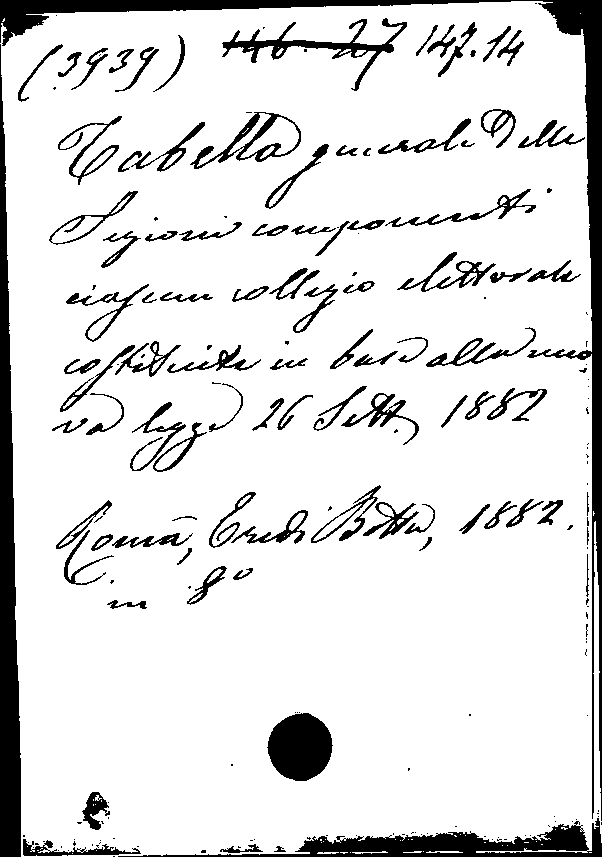 (3939) 146.27 147.14
Tabella generale delle
Sezioni componenti
ciascun collegio elettorale
costituite in base alla nuo
va legge 26 Sett. 1882
Roma, Eredi Botta, 1882.
in 8°